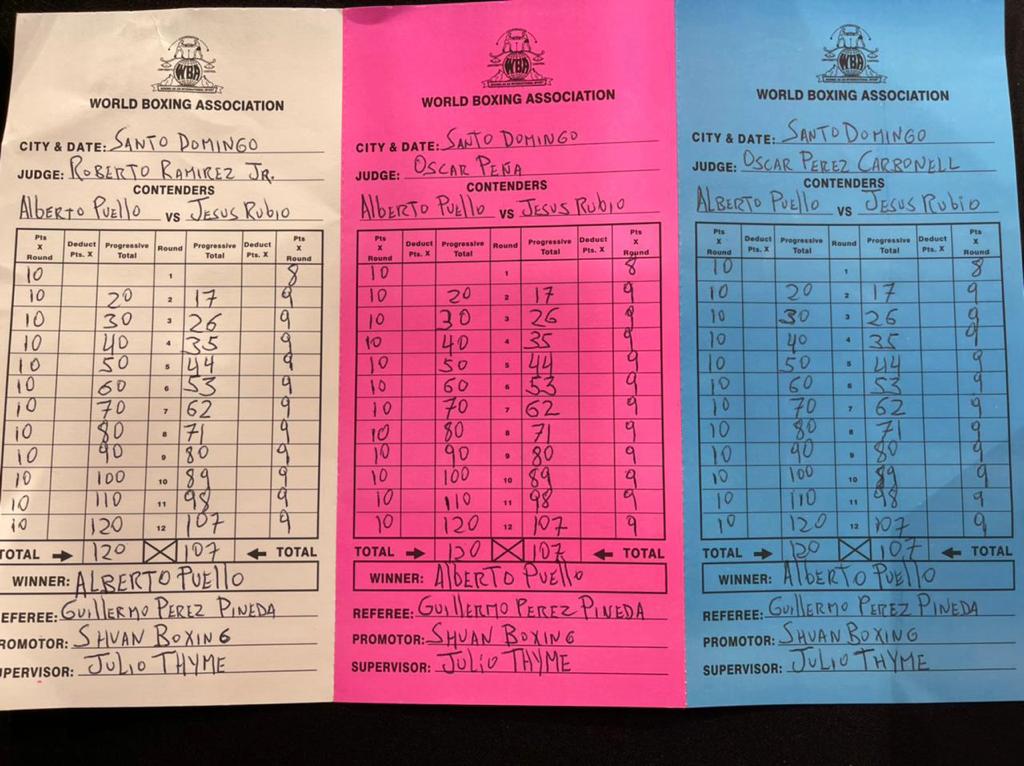 WBA
WORLD BOXING ASSOCIATION
CITY & DATE: SANTO DOMINGO
JUDGE: ROBERTO RAMIREZ JR.
CONTENDERS
Alberto Puello VS JESUS RUBIO
Pts X Round Deduct Pts. X Progressive Total Round Progressive Total Deduct Pts. X Pts X Round
10 1 8
10 20 2 17 9
10 30 3 26 9
10 40 4 35 9
10 50 5 44 9
10 60 6 53 9
10 70 7 62 9
10 80 8 71 9
10 90 9 80 9
10 100 10 89 9
10 110 11 98 9
10 120 12 107 9
TOTAL → 120 107 ← TOTAL
WINNER: ALBERTO PUELLO
REFEREE: GUILLERMO PEREZ PINEDA
ROMOTOR: SHUAN BOXING
UPERVISOR: JULIO THYME
WBA
WORLD BOXING ASSOCIATION
CITY & DATE: SANTO DOMINGO
JUDGE: OSCAR PEÑA
CONTENDERS
Alberto Puello VS JESUS RUBIO
Pts X Round Deduct Pts. X Progressive Total Round Progressive Total Deduct Pts. X Pts X Round
10 1 8
10 20 2 17 9
10 30 3 26 9
10 40 4 35 9
10 50 5 44 9
10 60 6 53 9
10 70 7 62 9
10 80 8 71 9
10 90 9 80 9
10 100 10 89 9
10 110 11 98 9
10 120 12 107 9
TOTAL → 120 107 ← TOTAL
WINNER: AlBERTO PUEllo
REFEREE: GUILLERMO PEREZ PINEDA
PROMOTOR: SHUAN BOXING
SUPERVISOR: JULIO THYME
WBA
WORLD BOXING ASSOCIATION
CITY & DATE: SANTO DOMINGO
JUDGE: OSCAR PEREZ CARBONELL
CONTENDERS
ALBERTO PUELLO VS JESUS RUBIO
Pts X Round Deduct Pts. X Progressive Total Round Progressive Total Deduct Pts. X Pts X Round
10 1 8
10 20 2 17 9
10 30 3 26 9
10 40 4 35 9
10 50 5 44 9
10 60 6 53 9
10 70 7 62 9
10 80 8 71 9
10 90 9 80 9
10 100 10 89 9
10 110 11 98 9
10 120 12 107 9
TOTAL → 120 107 ← TOTAL
WINNER: AlBERTO PUELLO
REFEREE: GUILLERMO PEREZ PINEDA
PROMOTOR: SHUAN BOXING
SUPERVISOR: JULIO THYME